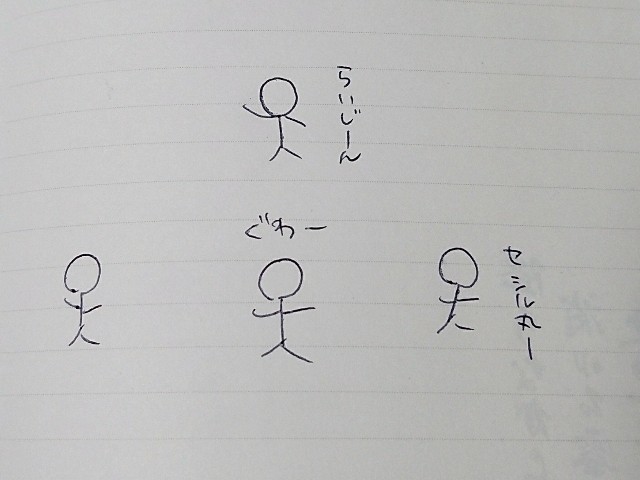 らいじーん
ぐわー
セシル丸ー